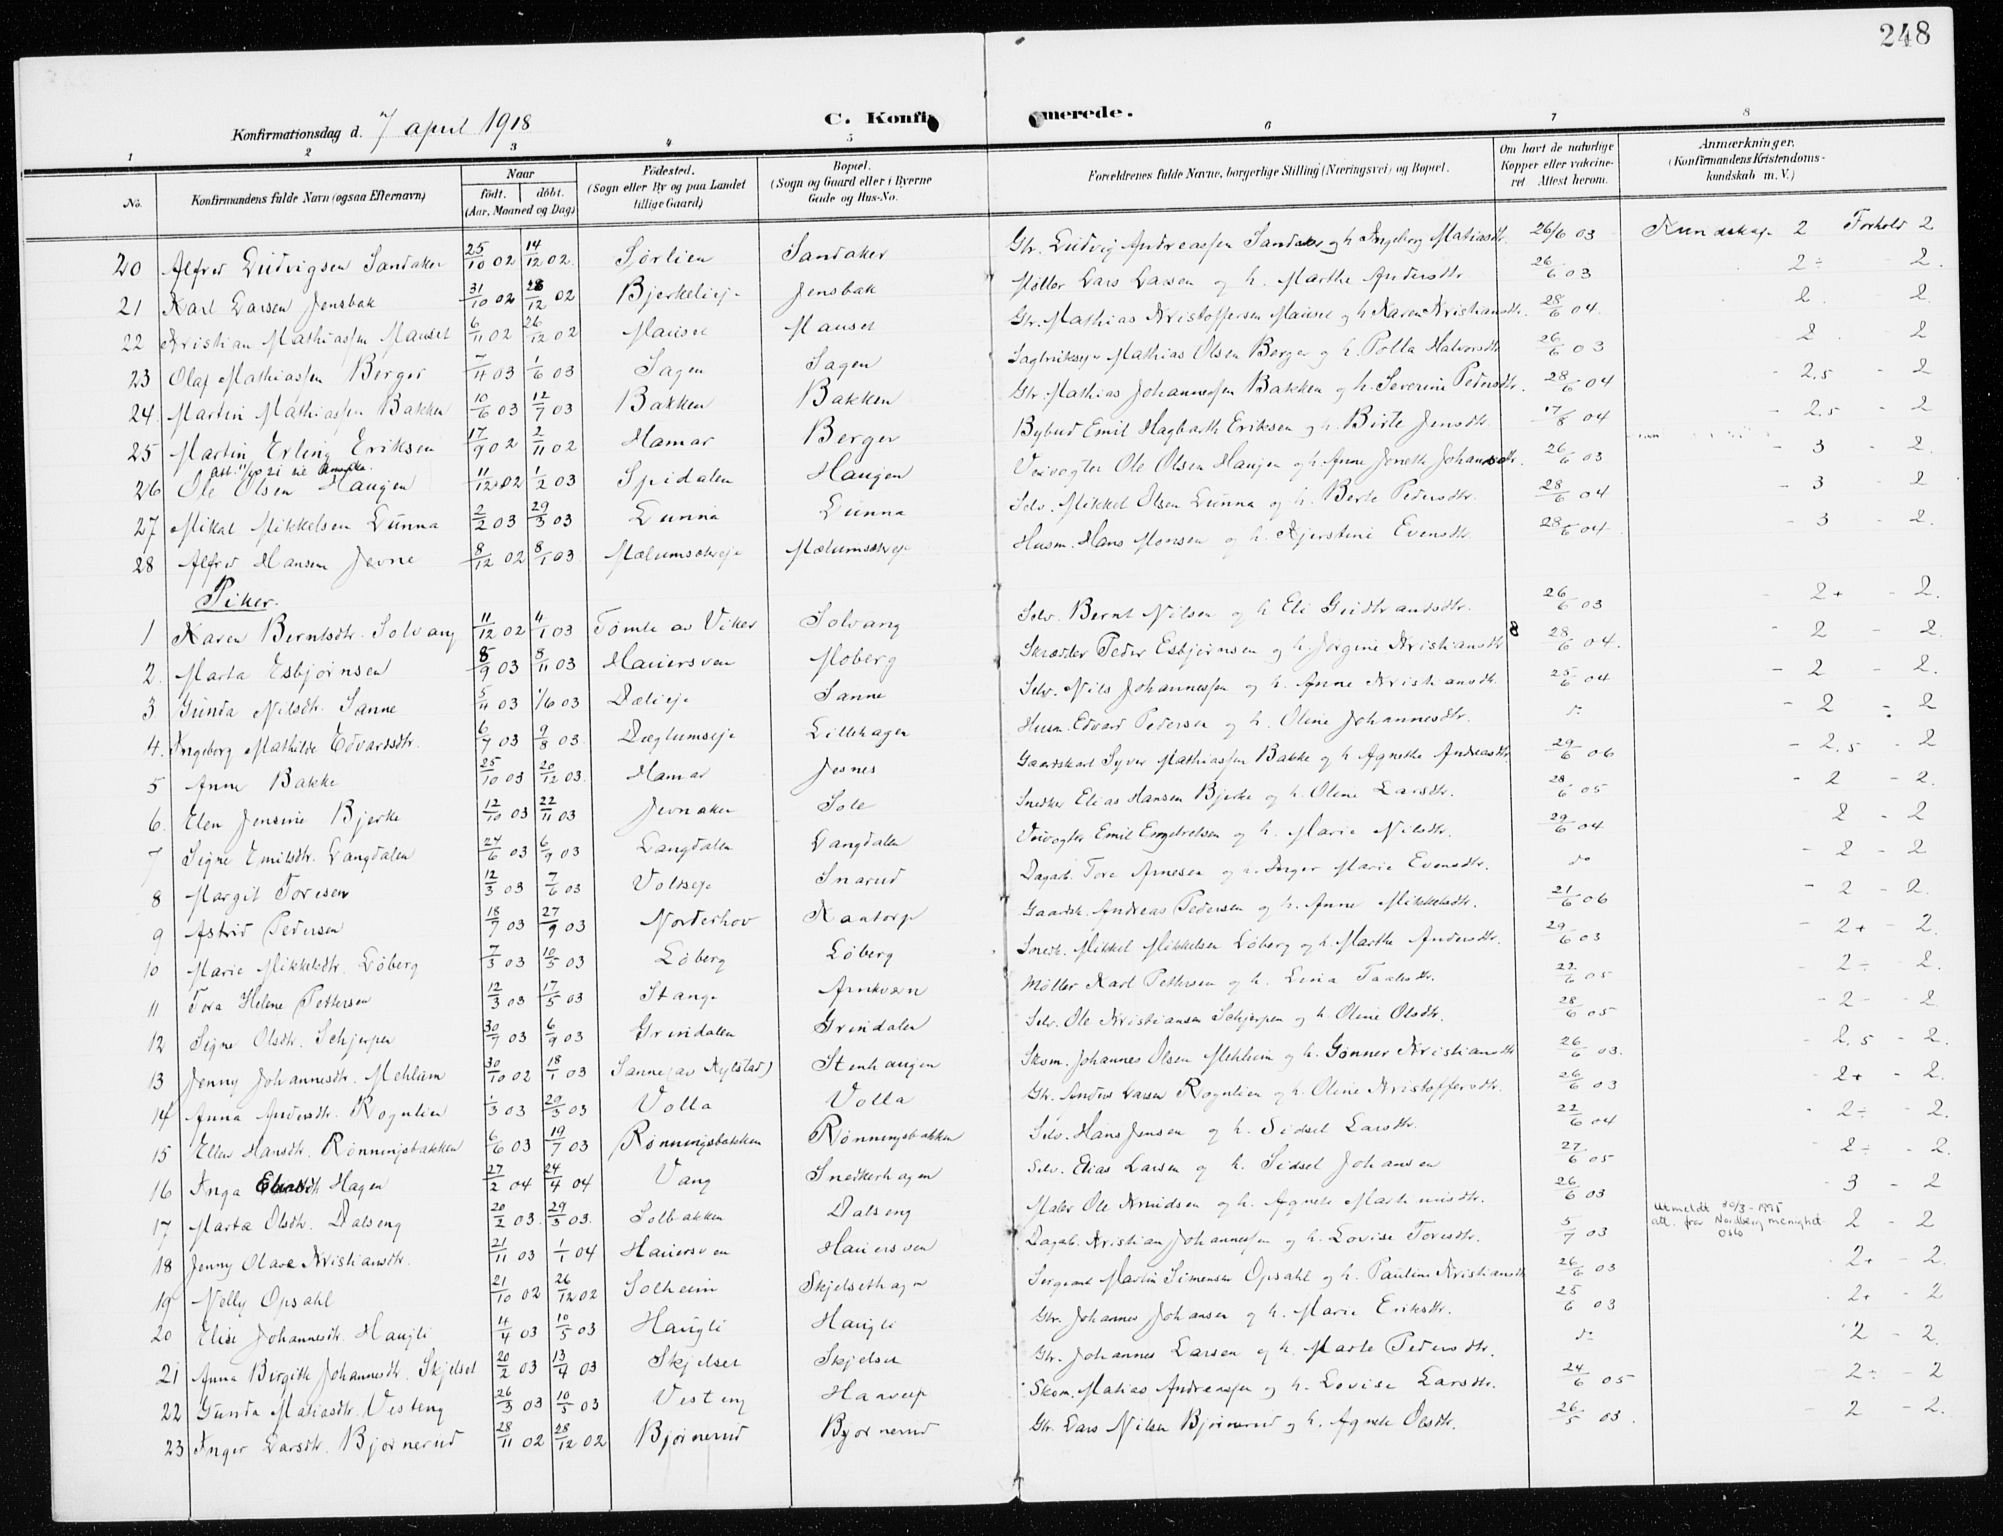 248
Konfirmationsdag d. 7 april 1918
C. Konfirmerede.
1 2 3 4 5 6 7 8
No. Konfirmandens fulde Navn (ogsaa Efternavn) Naar født. døbt. (Aar, Maaned og Dag) Födested. (Sogn eller By og paa Landet tillige Gaard) Bopæl. (Sogn og Gaard eller i Byerne Gade og Hus-No. Forældrenes fulde Navne, borgerlige Stilling (Næringsvei) og Bopæl. Om havt de naturlige Kopper eller vaccineret Attest herom. Anmærkninger. (Konfirmandens Kristendomskundskab m. V.)
20 Alfred Ludvigsen Sandaker 25/10 02 14/12 02 Sørlien Sandaker Gbr. Ludvig Andreassen Sandaker og h. Ingeborg Matiasdtr. 26/6 03 Kundskap 2 Forhold 2
21 Karl Larsen Jensbak 31/10 02 28/12 02 Bjerkelieje Jensbak Møller Lars Larsen og h. Marthe Andersdtr. 26/6 03 2÷ - 2.
22 Kristian Mathiassen Mauset 6/11 02 26/12 02 Mauset Mauset Gbr. Mathias Kristoffersen Mauset og h. Karen Kristiansdtr. 28/6 04. 2. 2.
23 Olaf Mathiassen Berger 7/4 03 1/6 03 Sagen Sagen Mathias Olsen Berger og h. Polla Halvorsdtr. 26/6 03 2. 2
24. Martin Mathiassen Bakken 10/6 03 12/7 03 Bakken Bakken Gbr. Mathias Johannessen Bakken og h. Severine Pedersdtr. 28/6 04 - 2,5 - 2
25 Martin Erling Eriksen 17/9 02 2/11 02 Hamar Berger Bybud Emil Hagbarth Eriksen og h. Birte Jensdtr. 17/8 04 - 2,5 - 2
26 Ole Olsen Haugen 11/12 02 1/2 03 Spidalen Haugen Veivogter Ole Olsen Haugen og h. Anne Jonette Johansdtr. 26/6 03 - 3 - 2.
27 Mikal Mikkelsen Lunna 2/2 03 29/3 03 Lunna Lunna Selv. Mikkel Olsen Lunna og h. Berte Pedersdtr. 28/6 04 - 3 - 2
28 Alfred Hansen Jevne 8/12 02 8/1 03 Mælumseteje Mælumseteje Husm. Hans Monsen og h. Kjerstine Evensdtr. 28/6 04 - 3 - 2.
Piker.
1 Karen Berntsdtr. Solvang 11/12 02 4/1 03 Tomle av Viker Solvang Selv. Bernt Nilsen og h. Eli Gudbrandsdtr. 26/6 03 - 2+ - 2.
2. Marta Esbjørnsen 8/9 03 8/11 03 Hauersven Moberg Skrædder Peder Esbjørnsen og h. Jørgine Kristiansdtr. 28/6 04. - 2 - 2.
3 Gunda Nilsdtr. Sanne 5/4 03 1/6 03 Dælieje Sanne Selv. Nils Johannessen og h. Anne Kristiansdtr. 25/6 04 - 2 - 2.
4. Ingeborg Mathilde Edvardsdtr. 6/7 03 9/8 03 Dæglumseje Lillehagen Husm. Edvard Pedersen og h. Oline Johannesdtr. do - 2 - 2
5 Anne Bakke 25/10 03 20/12 03. Hamar Jesnes Gaardskarl Syver Mathiassen Bakke og h. Agnethe Andreasdtr. 29/6 06 - 2,5 - 2
6. Elen Jensine Bjerke 12/10 03 22/11 03 Jevnaker Sole Snedker Elias Hansen Bjerke og h. Oline Larsdtr. 28/6 05 - 2 - 2.
7 Signe Emilsdtr. Langdalen 24/6 03 6/9 03 Langdalen Langdalen Veivogter Emil Engebretsen og h. Marie Nilsdtr. 29/6 04 2 - 2
8 Margit Toresen 12/3 03 7/6 03 Volkseje Snarud Dagarb. Tore Arnesen og h. Inger Marie Evensdtr. do - 2 - 2
9 Astrid Pedersen 18/7 03 27/9 03 Norderhov Kantorp Gaardsk. Andreas Pedersen og h. Anne Mikkelsdtr. 21/6 06 - 2 - 2.
10 Marie Mikkelsdtr. Løberg 7/3 03 10/5 03 Løberg Løberg Snedk. Mikkel Mikkelsen Løberg og h. Marthe Andersdtr. 29/6 03 - 2+ - 2.
11 Tora Helene Pettersen 12/3 03 17/5 03 Stange Arnkværn Møller Karl Pettersen og h. Lina 22/6 05 - 2÷ - 2.
12 Signe Olsdtr. Schjerpen 30/7 03 6/9 03 Grindalen Grindalen Selv. Ole Kristiansen Schjerpen og h. Oline Olsdtr. 28/6 05 - 2 - 2.
13 Jenny Johannesdtr. Mehlum 30/10 02 18/1 03 Sanne (av Kylstad) Stenhaugen Skom. Johannes Olsen Mehlum og h. Gønner Kristiansdtr. 26/6 03. - 2,5 - 2.
14 Anna Andersdtr. Rognlien 1/3 03 20/5 03 Volla Volla Gbr. Anders Larsen Rognlien og h. Oline Kristoffersdtr. 26/6 03 - 2+ - 2.
15 Ellen Hansdtr. Rønningsbakken 6/6 03 19/7 03 Rønningsbakken Rønningsbakken Selv. Hans Jensen og h. Sidsel Larsdtr. 22/6 04 - 2÷ - 2.
16 Inga Eliasdtr. Hagen 27/2 04 24/4 04 Vang Snedkerhagen Selv. Elias Larsen og h. Sidsel Johansen 27/6 05 - 2÷ - 2.
17 Marta Olsdtr. Dalseng 20/2 03. 29/3 03. Solbakken Dalseng Maler Ole Knudsen og h. Agnete 26/6 03 - 3 - 2
18 Jenny Olava Kristiansdtr. 21/11 03 1/1 04 Hauersven Hauersven Dagarb. Kristian Johannessen og h. Lovise Toresdtr. 5/7 03 Utmeldt 20/3-1975 att. fra Nordberg menighet Oslo 2 - 2
19 Nelly Opsahl 21/10 02 26/12 02 Solheim Skjelsethagen Sergeant Martin Simensen Opsahl og h. Pauline Kristiansdtr. 26/6 03 2+ - 2.
20 Elise Johannesdtr. Haugli 11/4 03 10/5 03 Haugli Haugli Gbr. Johannes Johansen og h. Marie Eriksdtr. 25/6 03 2+ - 2
21 Anna Birgitte Johannesdtr. Skjelset 20/2 03 13/4 03 Skjelset Skjelset Gbr. Johannes Larsen og h. Marte Pedersdtr. do 2 - 2.
22 Gunda Matiasdtr. Vesteng 26/3 03 10/5 03 Vesteng Skom. Matias Andreassen og h. Lovise Larsdtr. 24/6 05 - 2÷ - 2
23 Inger Larsdtr. Bjørnerud 28/11 02 28/12 02 Bjørnerud Bjørnerud Gbr. Lars Nilsen Bjørnerud og h. Agnete Olsdtr. 26/5 03. - 2 - 2.